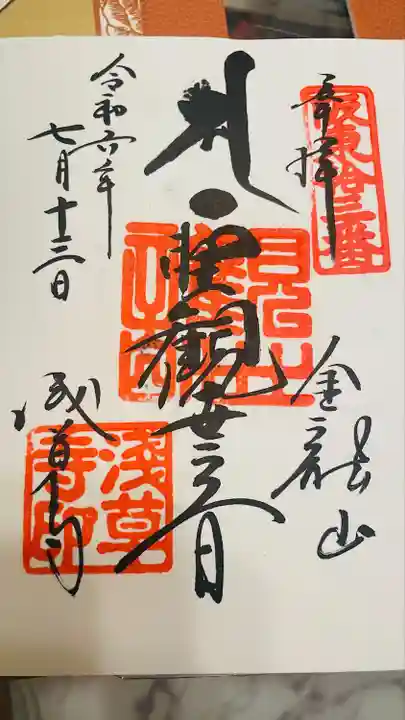 奉拝
坂東拾三番
金龍山
聖観世音
浅草寺
浅草寺印
令和六年
七月十三日